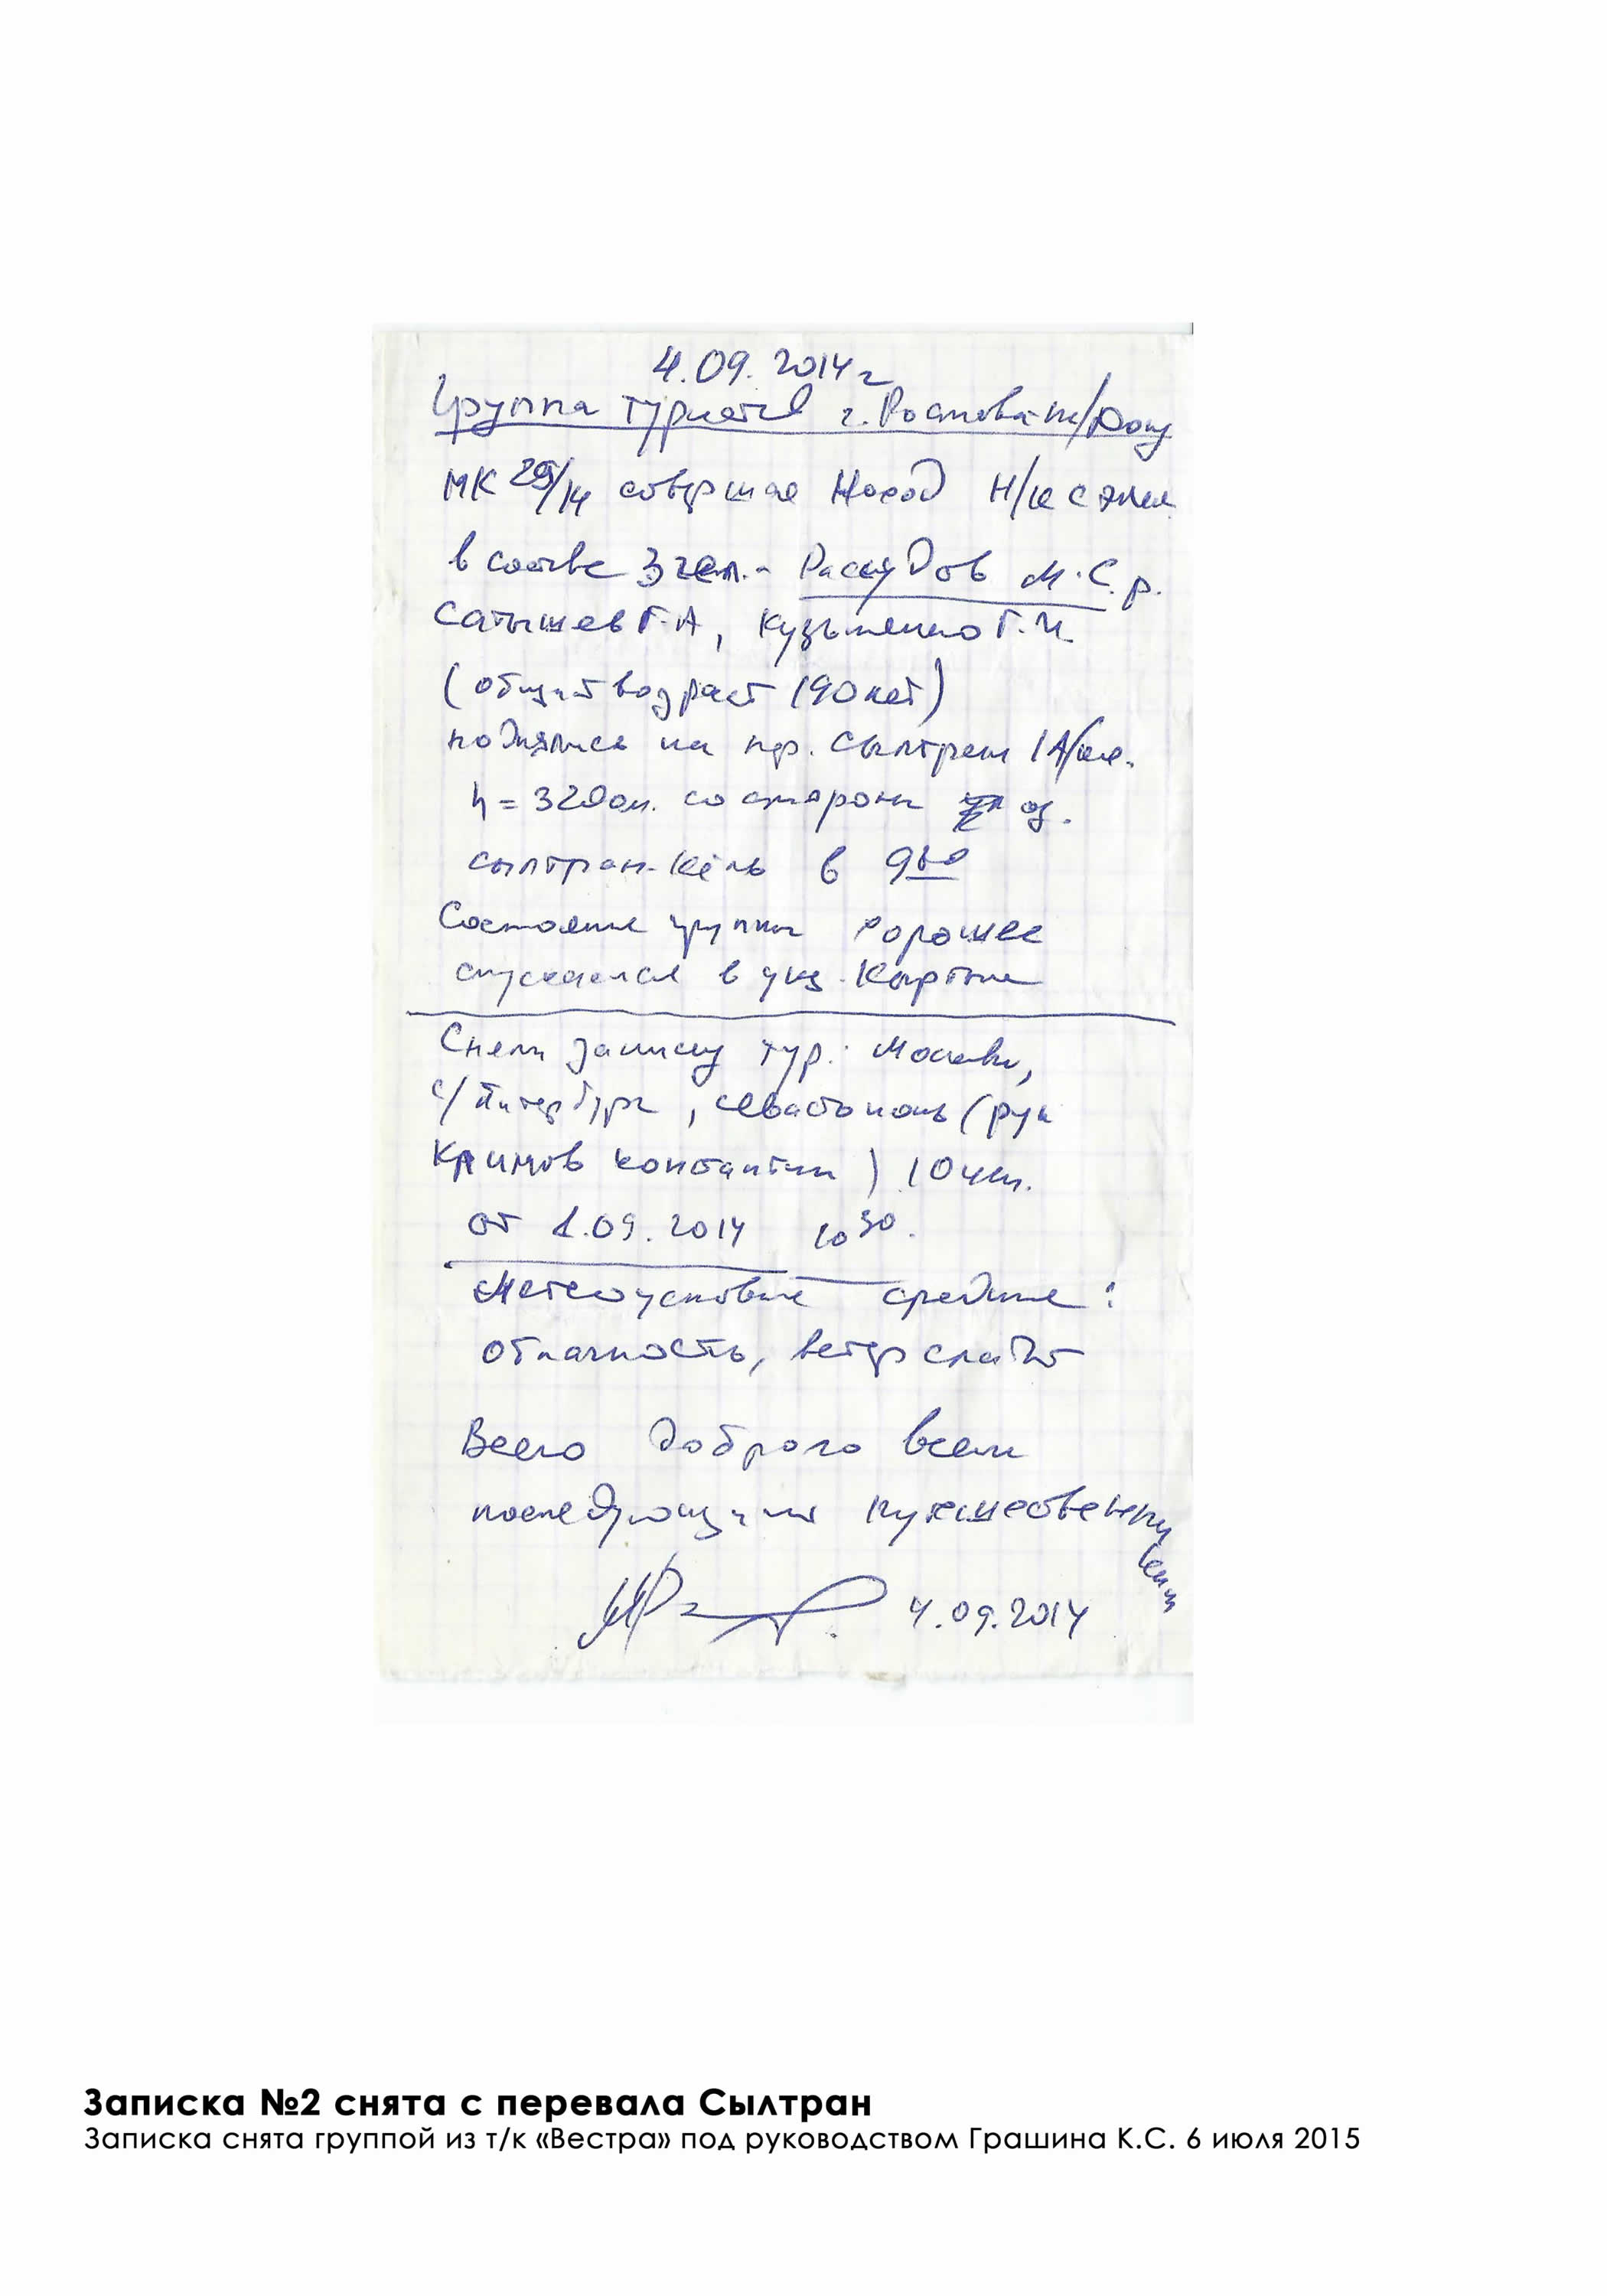 4.09.2014 г
Группа туристов г. Ростова-на/Дону
МК 29/14 совершая поход Н/к с эл.
в составе 3 чел. - Рассудов М.С. р.
Сатышев Г.А, Кузьменко Г.И.
(общий возраст 190 лет)
поднялись на пер. Сылтран 1А/к.
h = 3200м. со стороны оз.
Сылтран-Кёль в 9
Состояние группы хорошее
спускаемся в ущ. Кыртык
Сняли записку тур. Москвы,
С/Питербурга, Севастополь (рук
Климов Константин) 10 чел.
от 1.09.2014 10 30.
Метеоусловия средние:
облачность, ветер слабый
Всего доброго всем
последующим путешественникам
4.09.2014
Записка №2 снята с перевала Сылтран
Записка снята группой из т/к «Вестра» под руководством Грашина К.С. 6 июля 2015